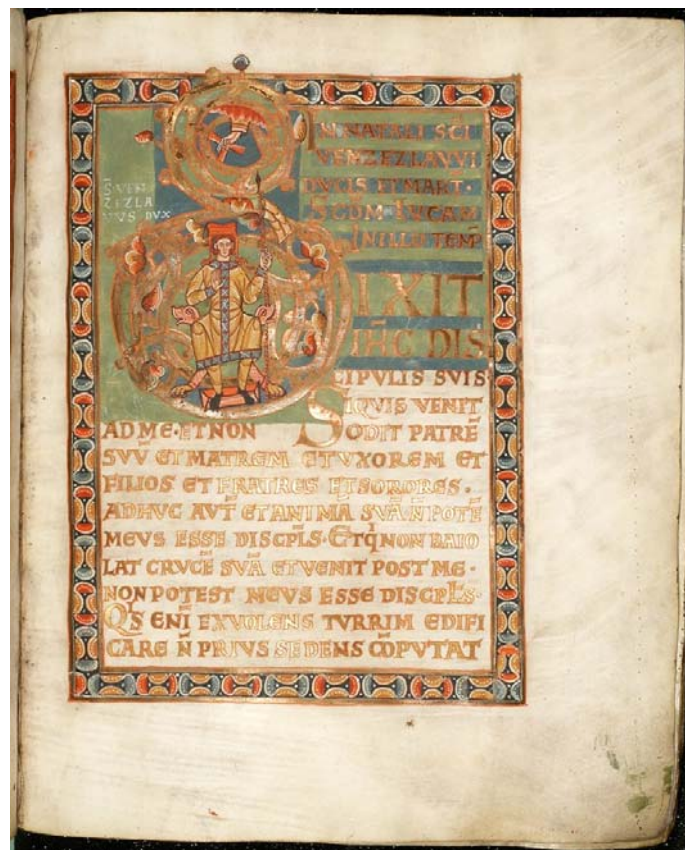 S̄. VEN
ZIZLA
VVS DVX
IN NATALI SC̄I
VENZEZLAVVI
DVCIS ET MART·
SCD̄M LVCAM
IN ILLO TEMP̄
DIXIT
IH̄C DIS
CIPVLIS SVIS
SIQVIS VENIT
AD ME·ET NON ODIT PATRĒ
SVV̄ ET MATREM ET VXOREM ET
FILIOS ET FRATRES ET SORORES·
ADHVC AVT̄ ET ANIMĀ SVĀ N̄ POTĒ
MEVS ESSE DISCPL̄S· ET Q̄ NON BAIO
LAT CRVCĒ SVĀ ET VENIT POST ME·
NON POTEST MEVS ESSE DISCPL̄S·
Q̄S ENĪ EX VOLENS TVRRIM EDIFI
CARE N̄ PRIVS SEDENS CŌPVTAT